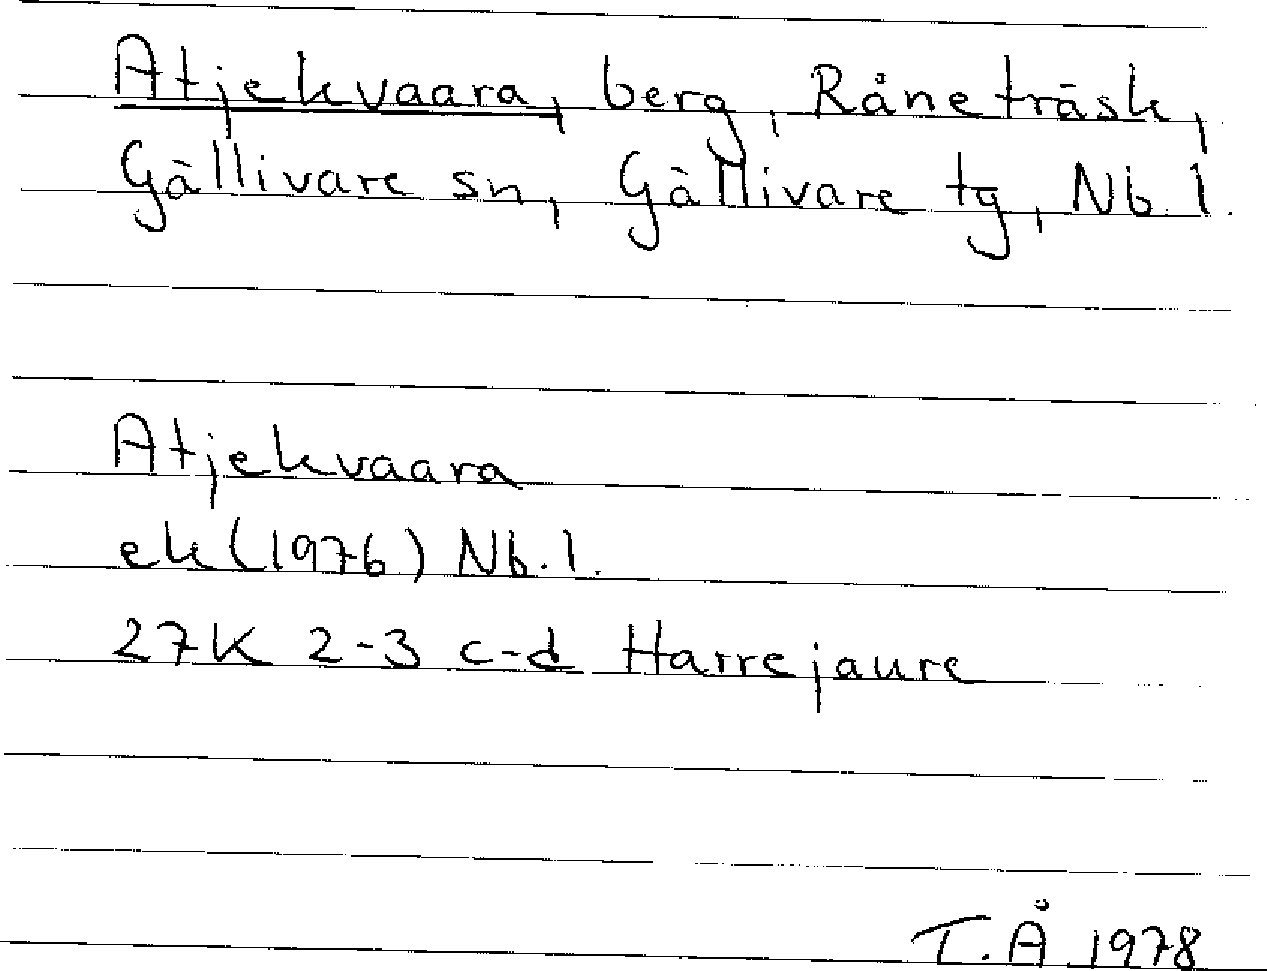 Atjekvaara, berg, Råneträsk,
Gällivare sn, Gällivare tg, Nb. l.
Atjekvaara
ek (1976) Nb. l.
27K 2-3 c-d Harrejaure
T.Å 1978